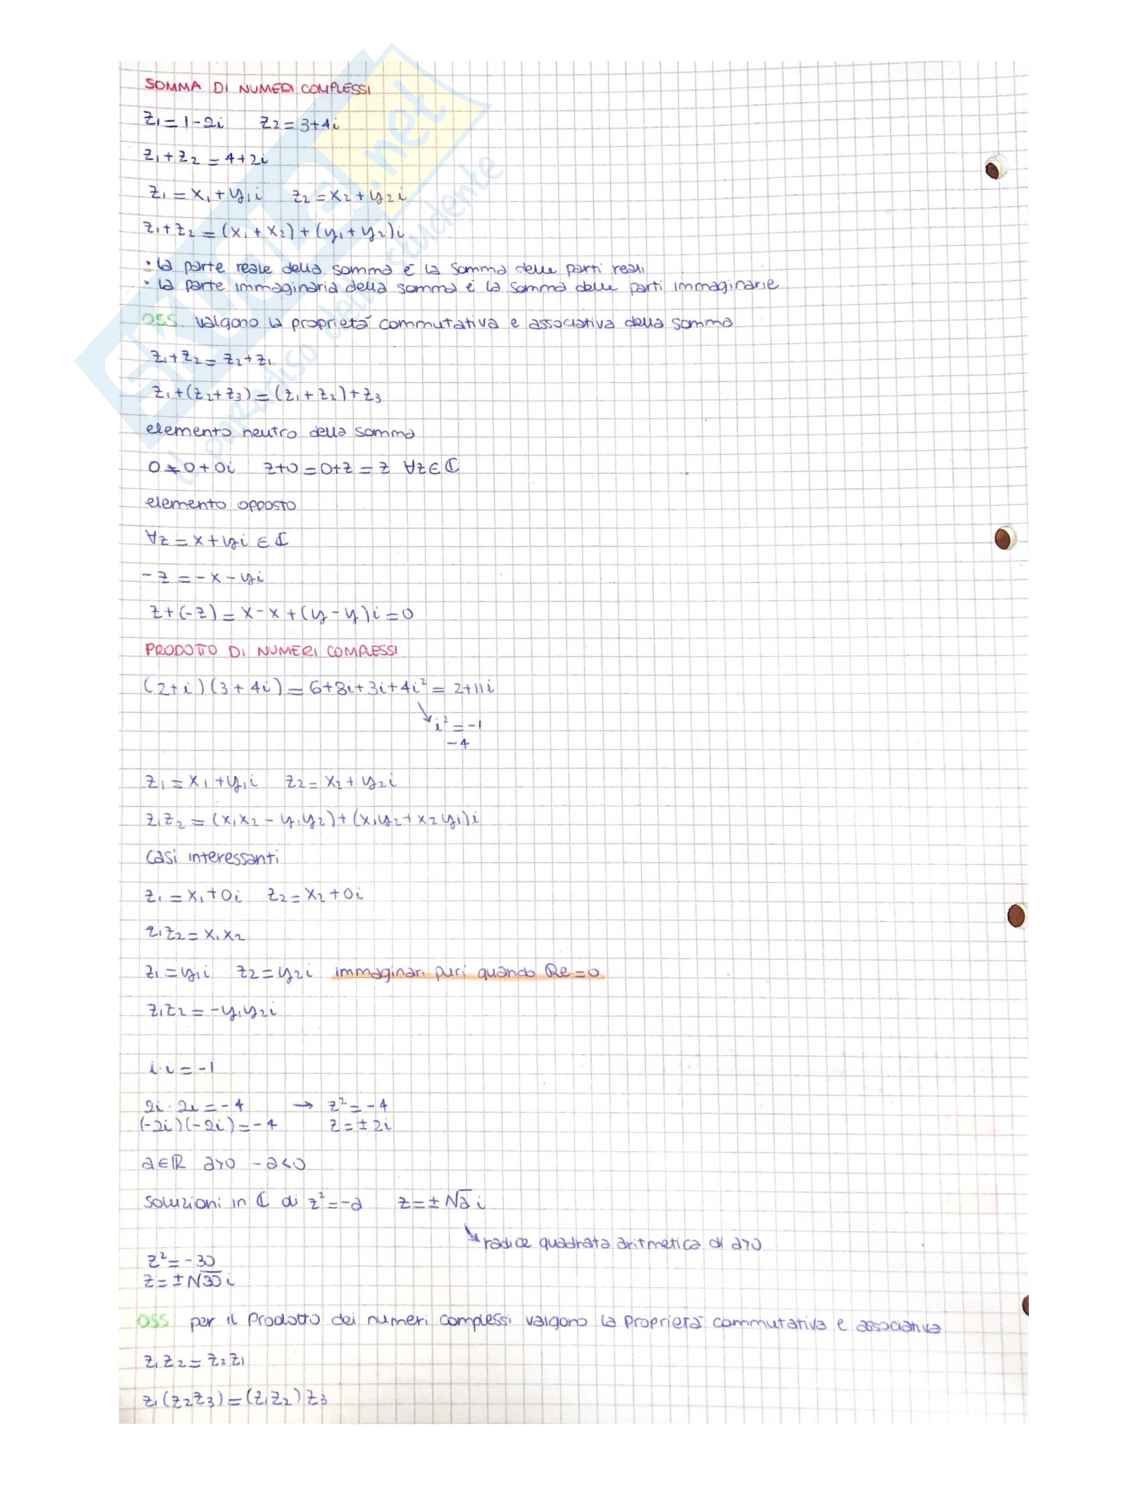 SOMMA DI NUMERI COMPLESSI
z₁ = 1-2i z₂ = 3+4i
z₁+z₂ = 4+2i
z₁ = x₁+y₁i z₂ = x₂+y₂i
z₁+z₂ = (x₁+x₂)+(y₁+y₂)i
• la parte reale della somma è la somma delle parti reali
• la parte immaginaria della somma è la somma delle parti immaginarie
OSS. valgono la proprietà commutativa e associativa della somma
z₁+z₂ = z₂+z₁
z₁+(z₂+z₃) = (z₁+z₂)+z₃
elemento neutro della somma
0 = 0+0i z+0 = 0+z = z ∀z∈ℂ
elemento opposto
∀z = x+yi ∈ ℂ
-z = -x-yi
z+(-z) = x-x+(y-y)i = 0
PRODOTTO DI NUMERI COMPLESSI
(2+i)(3+4i) = 6+8i+3i+4i² = 2+11i
↘ i² = -1
-4
z₁ = x₁+y₁i z₂ = x₂+y₂i
z₁z₂ = (x₁x₂ - y₁y₂)+(x₁y₂+x₂y₁)i
casi interessanti
z₁ = x₁+0i z₂ = x₂+0i
z₁z₂ = x₁x₂
z₁ = y₁i z₂ = y₂i immaginari puri quando Re=0
z₁z₂ = -y₁y₂i
i·i = -1
2i·2i = -4 → z² = -4
(-2i)(-2i) = -4 z = ±2i
a∈ℝ a>0 -a<0
soluzioni in ℂ di z² = -a z = ±√a i
↘ radice quadrata aritmetica di a>0
z² = -30
z = ±√30 i
OSS per il prodotto dei numeri complessi valgono la proprietà commutativa e associativa
z₁z₂ = z₂z₁
z₁(z₂z₃) = (z₁z₂)z₃
SKUOLA.net